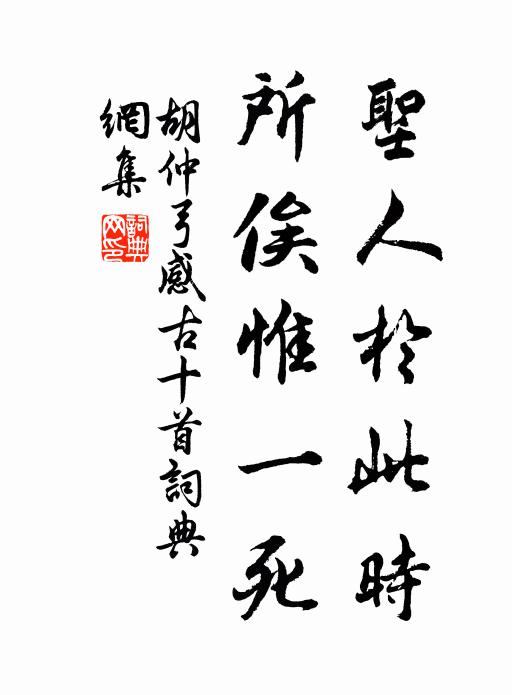 聖人於此時
所俟惟一死
胡仲弓感古十首詞典
網集
詞典
网印